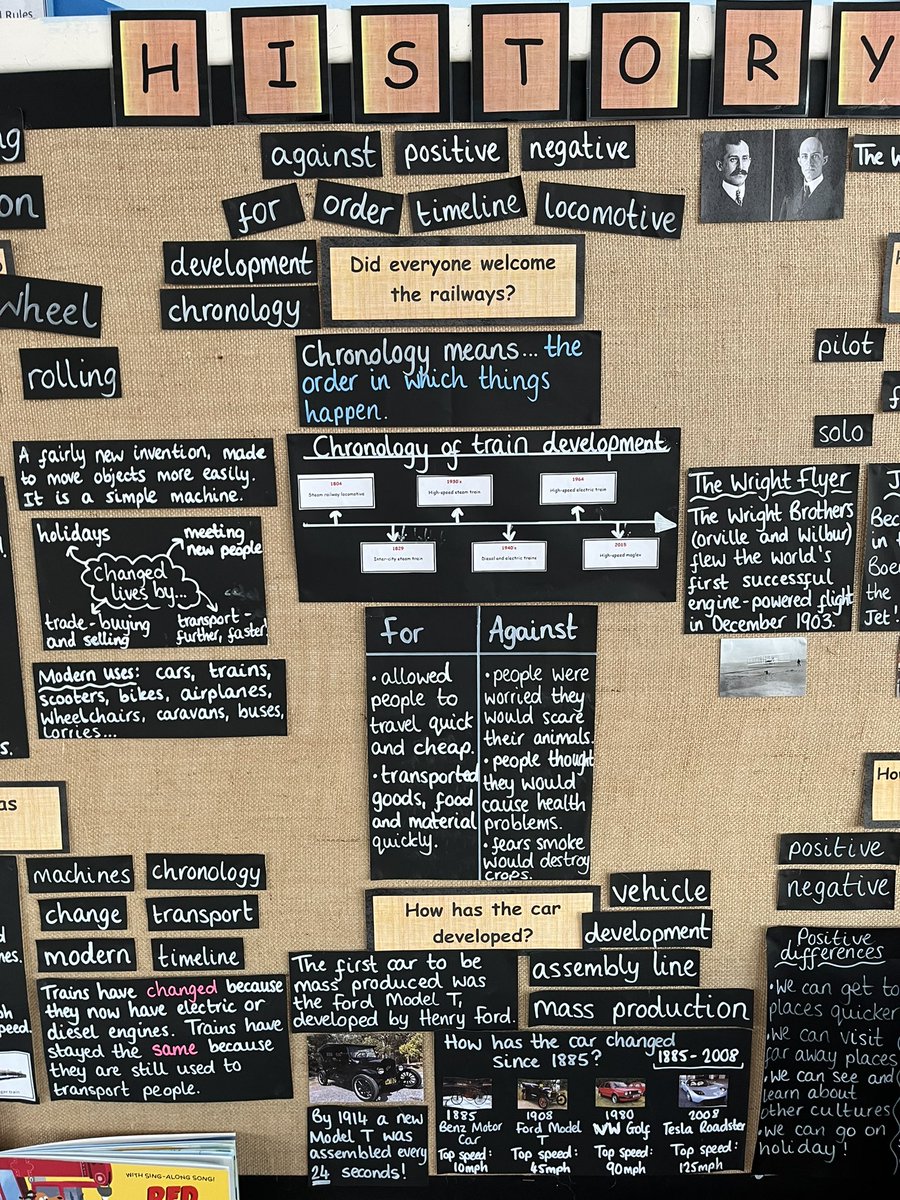 d Rules
HISTORY
ng
on
against positive negative
The W
for order timeline locomotive
development
chronology
Did everyone welcome
the railways?
Wheel
rolling
pilot
solo
Chronology means... the
order in which things
happen.
A fairly new invention, made
to move objects more easily.
It is a simple machine.
holidays
meeting
new people
Changed
lives by...
trade-buying
and selling
transport-
further, faster.
Modern uses: cars, trains,
scooters, bikes, airplanes,
wheelchairs, caravans, buses,
lorries...
Chronology of train development
1804
Steam railway locomotive
1930's
High-speed steam train
1964
High-speed electric train
1829
Inter-city steam train
1940's
Diesel and electric trains
2015
High-speed maglev
The Wright Flyer
The Wright Brothers
(orville and Wilbur)
flew the world's
first successful
engine-powered flight
in December 1903.
J
Bec
in t
Boe
the
Jet!
For
• allowed
people to
travel quick
and cheap.
• transported
goods, food
and material
quickly.
Against
• people were
worried they
would scare
their animals.
• people thought
they would
cause health
problems.
• fears smoke
would destroy
crops.
s.
as
Ho
machines chronology
change transport
modern timeline
Trains have changed because
they now have electric or
diesel engines. Trains have
stayed the same because
they are still used to
transport people.
nes.
ph
peed.
How has the car
developed?
vehicle
development
assembly line
mass production
The first car to be
mass produced was
the Ford Model T,
developed by Henry Ford.
By 1914 a new
Model T was
assembled every
24 seconds!
How has the car changed
since 1885? 1885-2008
1885
Benz Motor
Car
Top speed:
10mph
1908
Ford Model
T
Top speed:
45mph
1980
VW Golf
Top speed:
90mph
2008
Tesla Roadster
Top speed:
125mph
positive
negative
Positive
differences
• We can get to
places quicker
• We can visit
far away places
• We can see and
learn about
other cultures
• We can go on
holiday!
WITH SING-ALONG SONG!
RED